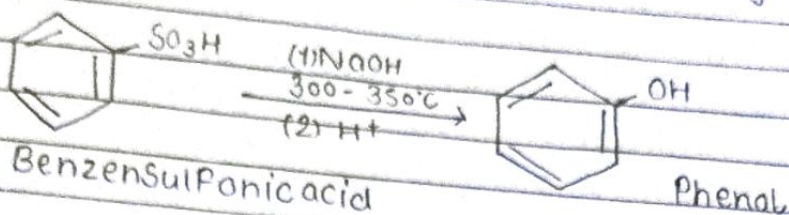 SO3H
(1)NaOH
300-350°C
(2) H+
OH
Benzensulfonic acid
Phenol